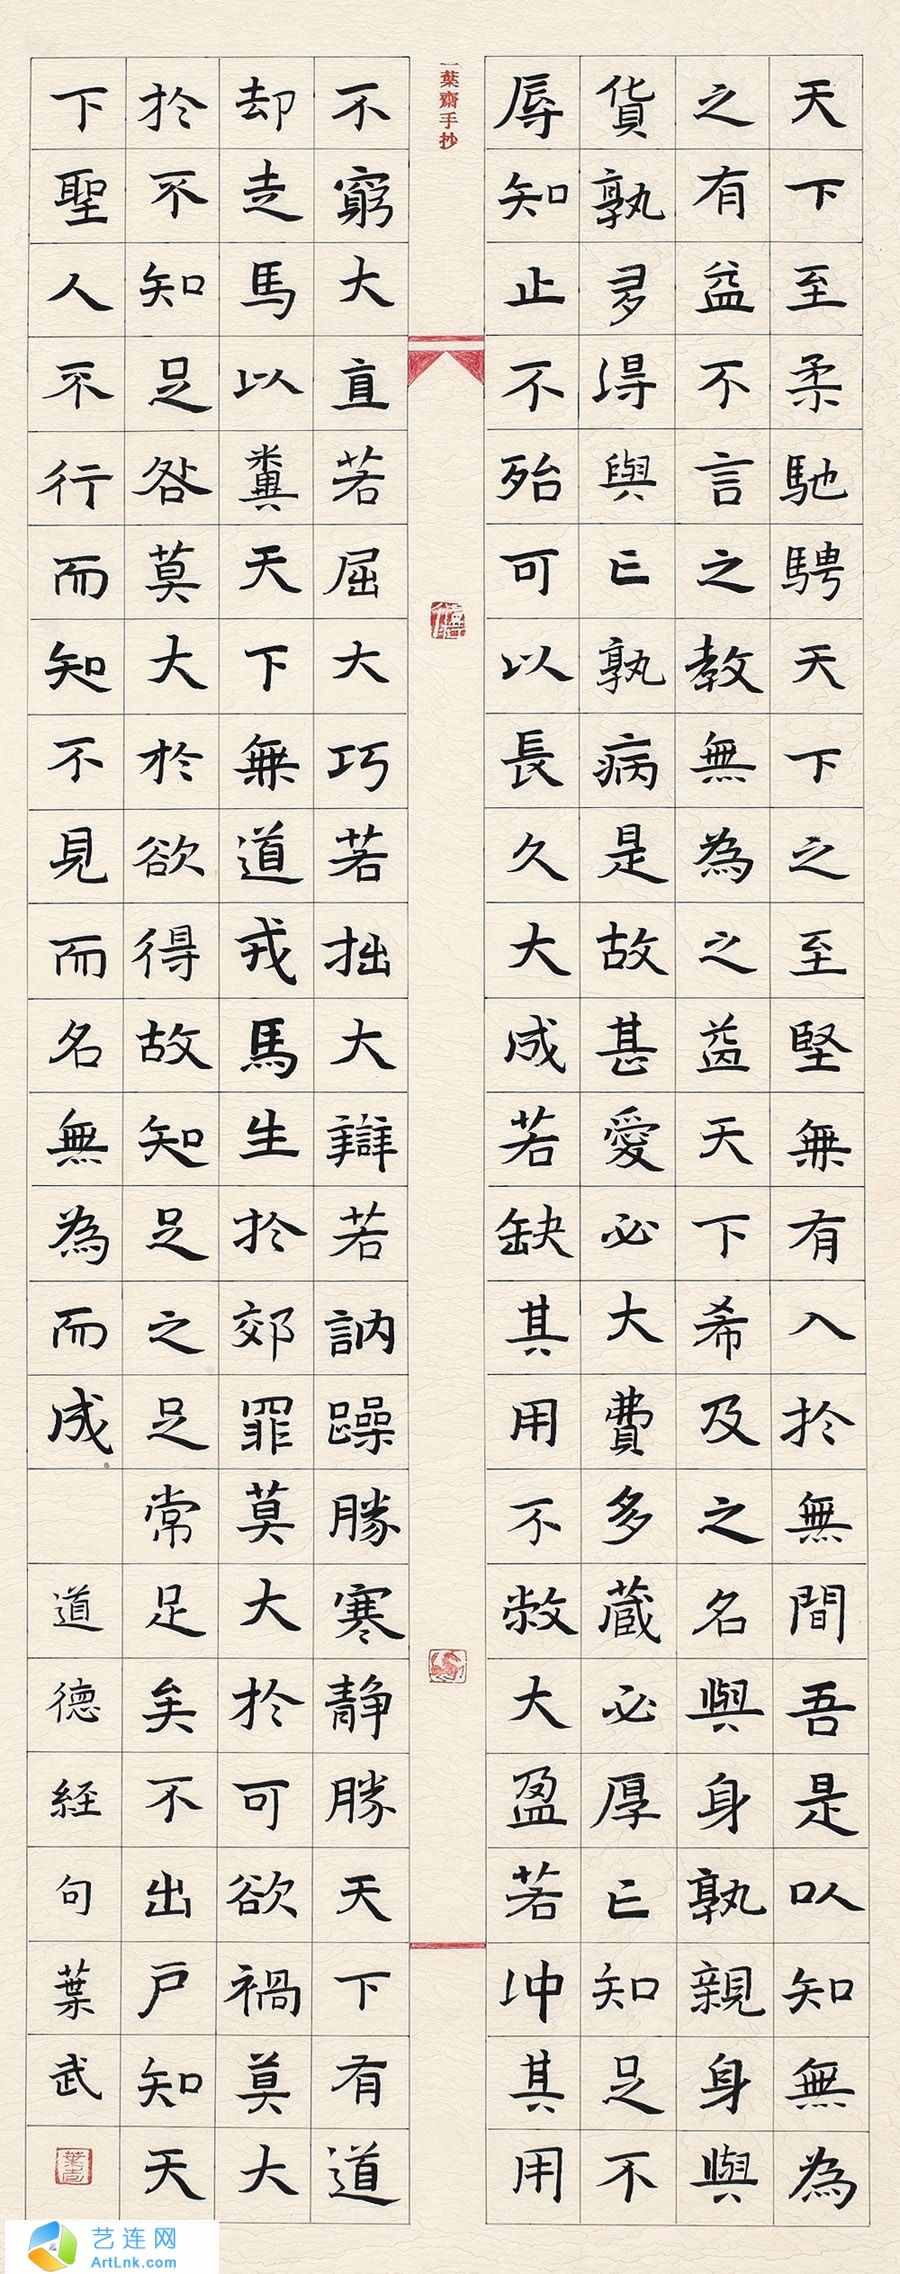 天下至柔馳騁天下之至堅無有入於無間吾是以知無為
之有益不言之教無為之益天下希及之名與身孰親身與
貨孰多得與亡孰病是故甚愛必大費多蔵必厚亡知足不
辱知止不殆可以長久大成若缺其用不敝大盈若冲其用
一葉齋手抄
不窮大直若屈大巧若拙大辯若訥躁勝寒静勝天下有道
却走馬以糞天下無道戎馬生於郊罪莫大於可欲禍莫大
於不知足咎莫大於欲得故知足之足常足矣不出戸知天
下聖人不行而知不見而名無為而成 道德経句葉武
艺连网
ArtLnk.com